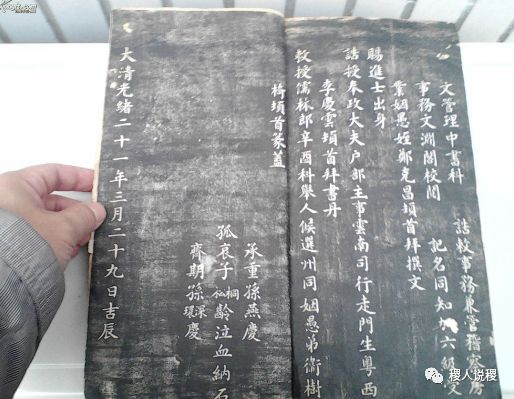 文管理中書科 誥敕事務兼管稽察房
事務文淵閣校閱 記名同知加六級文
業姻愚姪鄭克昌頓首拜撰文
賜進士出身
誥授奉政大夫戶部主事雲南司行走門生粵西
李慶雲頓首拜書丹
敕授儒林郎辛酉科舉人候選州同姻愚弟衛樹
椅頓首篆蓋
承重孫燕慶
孤哀子桐齡泣血納石
齊期孫深慶
大清光緒二十一年三月二十九日吉辰
稷人说稷